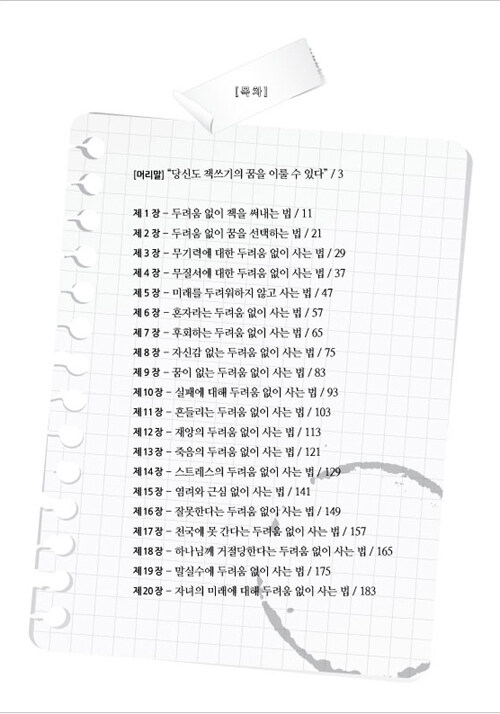 [목 차]
[머리말] “당신도 책쓰기의 꿈을 이룰 수 있다” / 3
제 1 장 – 두려움 없이 책을 써내는 법 / 11
제 2 장 – 두려움 없이 꿈을 선택하는 법 / 21
제 3 장 – 무기력에 대한 두려움 없이 사는 법 / 29
제 4 장 – 무질서에 대한 두려움 없이 사는 법 / 37
제 5 장 – 미래를 두려워하지 않고 사는 법 / 47
제 6 장 – 혼자라는 두려움 없이 사는 법 / 57
제 7 장 – 후회하는 두려움 없이 사는 법 / 65
제 8 장 – 자신감 없는 두려움 없이 사는 법 / 75
제 9 장 – 꿈이 없는 두려움 없이 사는 법 / 83
제10장 – 실패에 대해 두려움 없이 사는 법 / 93
제11장 – 흔들리는 두려움 없이 사는 법 / 103
제12장 – 재앙의 두려움 없이 사는 법 / 113
제13장 – 죽음의 두려움 없이 사는 법 / 121
제14장 – 스트레스의 두려움 없이 사는 법 / 129
제15장 – 염려와 근심 없이 사는 법 / 141
제16장 – 잘못한다는 두려움 없이 사는 법 / 149
제17장 – 천국에 못 간다는 두려움 없이 사는 법 / 157
제18장 – 하나님께 거절당한다는 두려움 없이 사는 법 / 165
제19장 – 말실수에 두려움 없이 사는 법 / 175
제20장 – 자녀의 미래에 대해 두려움 없이 사는 법 / 183